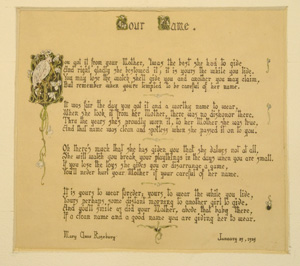 Your Name.
You got it from your Mother, 'twas the best she had to give.
And right gladly she bestowed it; it is yours the while you live.
You may lose the watch she'll give you and another you may claim,
But remember when you're tempted to be careful of her name.
It was fair the day you got it and a worthy name to wear.
When she took it from her Mother, there was no dishonor there.
Thru the years she's proudly worn it, to her Mother she was true,
And that name was clean and spotless when she passed it on to you.
Oh there's much that she has given you that she values not at all.
She will watch you break your playthings in the days when you are small.
If you lose the toys she gives you or disarrange a game,
You'll never hurt your Mother if you're careful of her name.
It is yours to wear forever; yours to wear the while you live,
Yours perhaps, some distant morning to another girl to give.
And you'll smile as did your Mother, above that baby there,
If a clean name and a good name you are giving her to wear.
Mary Grace
January 1929